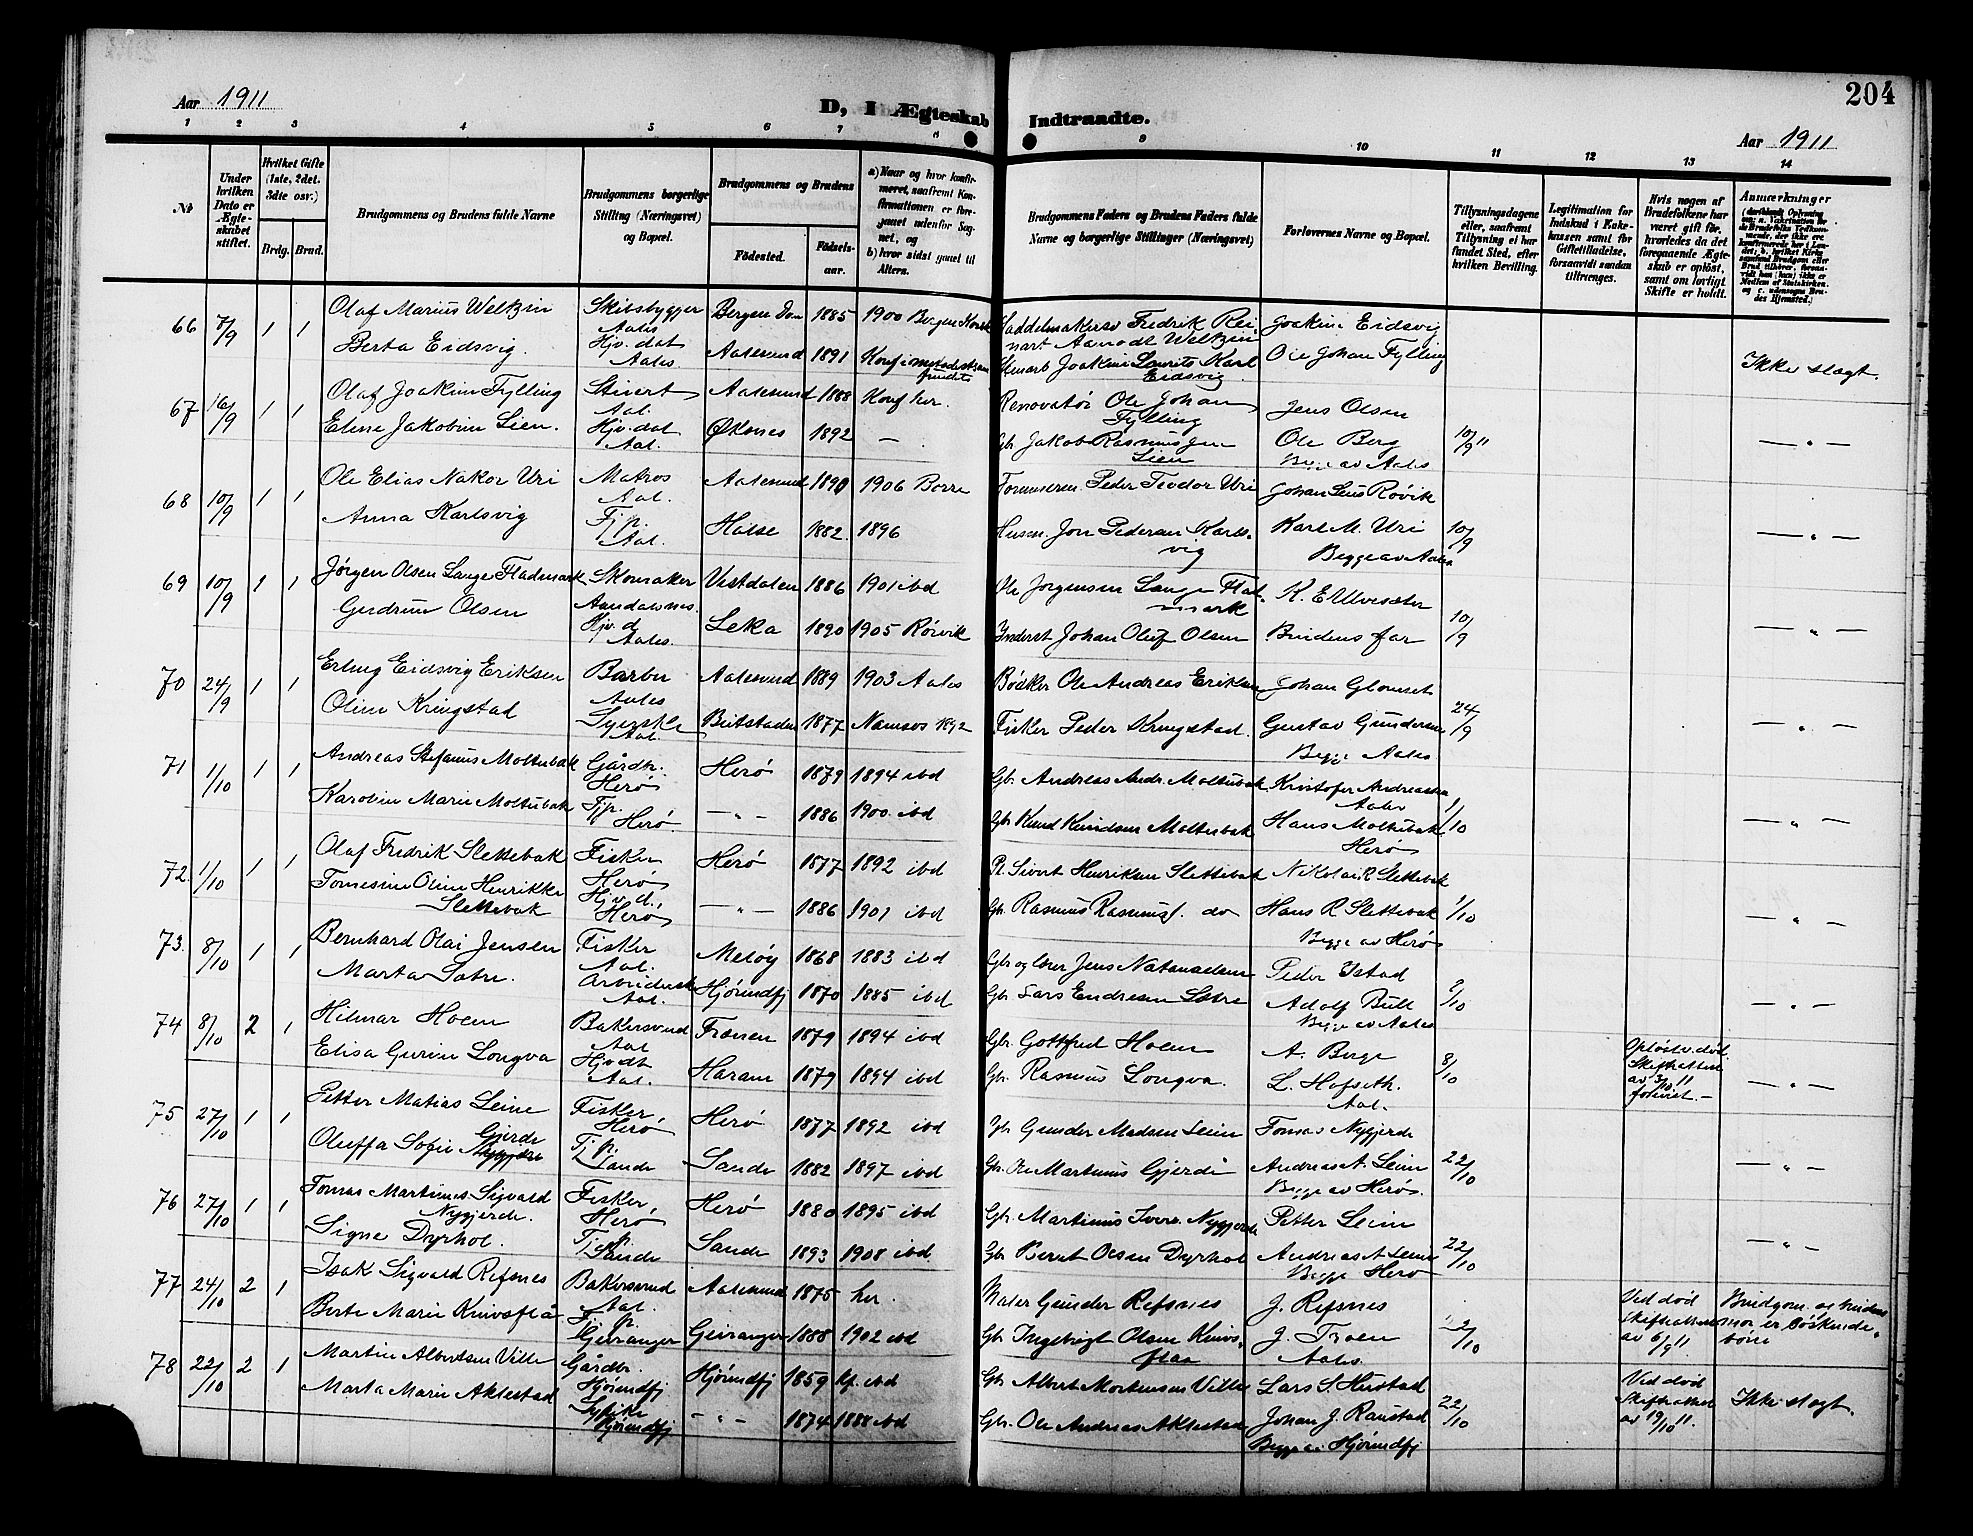 204
Aar 1911
D, I Ægteskab Indtraadte.
Aar 1911
1 2 3 4 5 6 7 8 9 10 11 12 13 14
Nr
Under hvilken Dato er Ægteskabet stiftet.
Hvilket Gifte (1ste, 2det, 3dte osv.)
Brdg. Brud.
Brudgommens og Brudens fulde Navne
Brudgommens borgerlige Stilling (Næringsvei) og Bopæl.
Brudgommens og Brudens
Födested.
Födselsaar.
a) Naar og hvor konfirmeret, saafremt Konfirmationen er foregaaet udenfor Sognet, og
b) hvor sidst gaaet til Alters.
Brudgommens Faders og Brudens Faders fulde Navne og borgerlige Stillinger (Næringsvei)
Forlovernes Navne og Bopæl.
Tillysningsdagene eller, saafremt Tillysning ei har fundet Sted, efter hvilken Bevilling.
Legitimation for Indskud i Enkekassen samt for Giftetilladelse, forsaavidt saadan tiltrænges.
Hvis nogen af Brudefolkene har været gift för, hvorledes da det foregaaende Ægteskab er oplöst, samt om lovligt Skifte er holdt.
Anmærkninger
66 7/9 1 1 Olaf Marius Weltzin Skibsbygger Aales Bergen Dom 1885 1900 Bergen Korsk Saddelmakersv Fredrik Reinart Aamodt Weltzin Joakim Eidsvig
Berta Eidsvig. Hjv. dat Aales Aalesund 1891 Konf i metodistsamfundet Stuart Joakim Laurits Karl Eidsvig. Ole Johan Fylling Ikke slægt.
67 16/9 1 1 Olaf Joakim Fylling Stuert Aal. Aalesund 1888 Konf her. Renovatör Ole Johan Fylling Jens Olsen
Eline Jakobine Lien. Hjv. dat Aal. Öksnes 1892 — Gbr. Jakob Rasmus Jen Lien Ole Berg Begge av Aales 10/9 11 — " —
68 10/9 1 1 Ole Elias Nakor Uri Matros Aal. Aalesund 1890 1906 Borre Tömmerm. Peder Teodor Uri Johan Lens Rövik
Anna Karlsvig Tjp. Aal. Halse 1882. 1896 Husm. Jon Pedersen Karlsvig Karl M. Uri Begge av Aales 10/9 — " —
69 10/9 1 1 Jörgen Olsen Lange Fladmark Skomaker Aandalsnes. Vestdalen 1886 1901 ibd Ole Jörgensen Lange Fladmark K. E Ulveseter
Gudrun Olsen Hjv. d Aales. Leka 1890 1905 Rörvik Inderst Johan Oluf Olsen Brudens far 10/9 — " —
70 24/9 1 1 Erling Eidsvig Eriksen Barber Aales Aalesund 1889 1903 Aales Bödker Ole Andreas Eriksen Johan Glomset
Oline Kringstad Syerske Aal. Beitstaden 1877 Namsos 1892 Fisker Peder Kringstad. Gustav Gundersen Begge Aales 24/9 — " —
71 1/10 1 1 Andreas Stefanus Moltubak Gårdbr. Herö Herö 1879 1894 ibd Gbr. Andreas Andr. Moltubak Kristofer Andreassen Aales
Karoline Marie Moltubak Tjp. Herö. — " — 1886 1900 ibd Gbr Knud Knudsen Moltubak Hans Moltubak Herö 1/10 — " —
72. 1/10 1 1 Olaf Fredrik Slettebak Fisker Herö Herö 1877 1892 ibd Pl. Sivert Henriksen Slettebak Nikolai R Slettebak
Tomesine Oline Henrikke Slettebak Hjv. d. Herö — " — 1886 1901 ibd Gbr. Rasmus Rasmus f. do Hans R Slettebak Begge av Herö 1/10 — " —
73. 8/10 1 1 Bernhard Olai Jensen Fisker Aal. Melöy 1868 1883 ibd Gbr og lærer Jens Natanaelsen Peder Ystad
Marta Sætre. Arbeiderske Aal. Hjörundfj 1870 1885 ibd Gbr Lars Endresen Sætre Adolf Bull Begge av Aales 8/10 — " —
74 8/10 2 1 Hilmar Hoem Bakersvend Aal Frænen 1879 1894 ibd Gbr. Gottfred Hoem A. Berge Oplöst v. död. Skifteattest av 3/10 11 forevist. —
Elisa Gurine Longva Hjvdt Aal. Haram 1879 1894 ibd Gbr. Rasmus Longva. L. Hofseth. Aal. 8/10 — " —
75 27/10 1 1 Petter Matias Leine Fisker, Herö Herö 1877 1892 ibd Gbr Gunder Madsen Leine Tomas Nygjerde
Oluffa Sofie Gjerde Tjp. Sande Sande 1882 1897 ibd Gbr. Ole Martinus Gjerde Andreas A. Leine Begge av Herö. 22/10 — " —
76 27/10 1 1 Tomas Martinus Sigvald Nygjerde. Fisker, Herö Herö 1880 1895 ibd Gbr. Martinus Ivers. Nygjerde Petter Leine
Signe Dyrhol. Tjp. Sande Sande 1893 1908 ibd. Gbr Bernt Olsen Dyrhol Andreas A Leine Begge Herö 22/10 — " —
77 24/10 2 1 Isak Sigvald Refsnes Bakersvend Aal. Aalesund 1875 her. Maler Gunder Refsnes J. Refsnes Ved död Skifteattest av 6/9 11 Brudgom. og brudens mor er söskendebörn
Berte Marie Knivsflå Tjp. Geiranger Geiranger 1888 1902 ibd Gbr. Ingebrigt Olsen Knivsflaa J. Troen Aales. 22/10
78 22/10 2 1 Martin Albertsen Ville Gårdbr. Hjörundfj Hjörundfj 1859 kf. ibd Gbr Albert Mortensen Ville Lars S. Hustad Ved död Skifteattest av 19/10 11. Ikke slægt.
Marta Marie Aklestad Hjörundfj — " — 1874 1888 ibd Gbr. Ole Andreas Aklestad Johan J. Raustad Begge av Hjörundfj 22/10